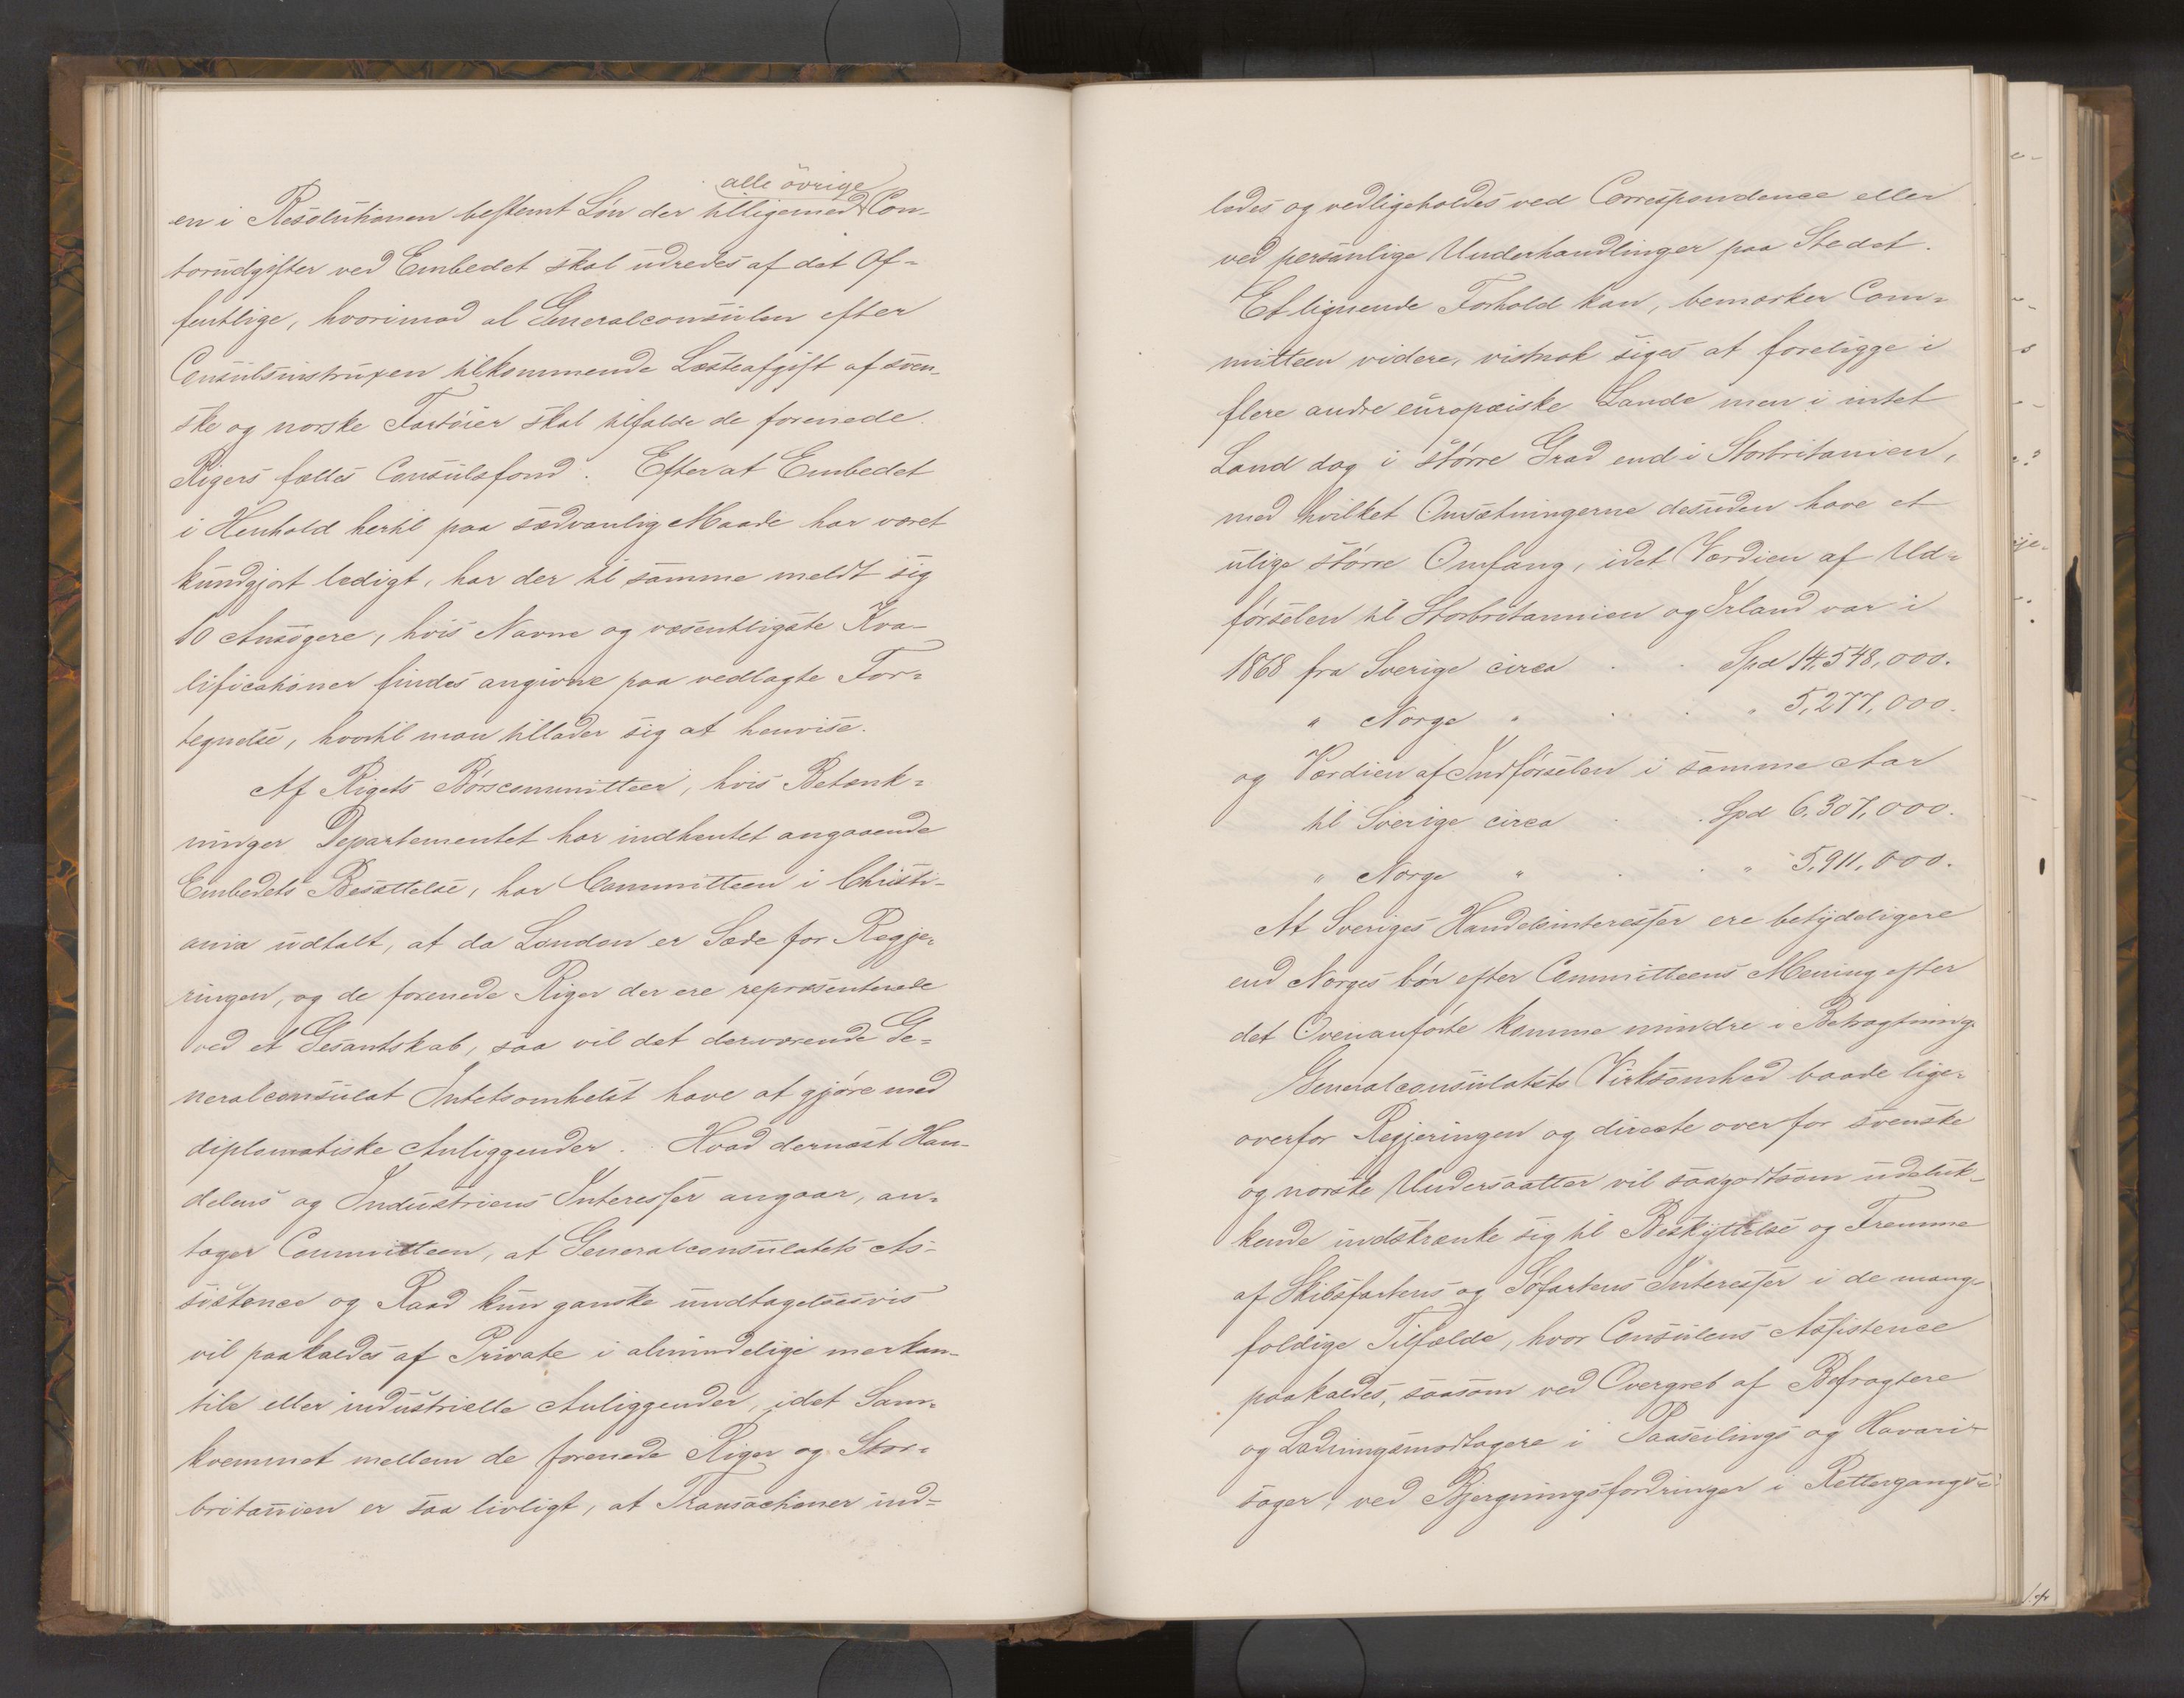 en i Resolutionen bestemt Løn der tilligemed alle övrige Con-
torudgifter ved Embedet skal udredes af det Of-
fentlige, hvorimod al Generalconsulen efter
Consulsinstruxen tilkommende Læsteafgift af sven-
ske og norske Fartøier skal tilfalde de forenede
Rigers fælles Consulsfond. Efterat Embedet
i Henhold hertil paa sædvanlig Maade har været
kundgjort ledigt, har der til samme meldt sig
10 Ansøgere, hvis Navne og væsentligste Kva-
lificationer findes angivne paa vedlagte For-
tegnelse, hvortil man tillader sig at henvise.
Af Rigets Børscommitteer, hvis Betænk-
ninger Departementet har indhentet angaaende
Embedets Besættelse, har Committeen i Christi-
ania udtalt, at da London er Sæde for Regje-
ringen, og de forenede Riger der ere repræsenterede
ved et Gesantskab, saa vil det derværende Ge-
neralconsulat Intetsomhelst have at gjøre med
diplomatiske Anliggender. Hvad dernæst Han-
delens og Industriens Interesser angaar, an-
tager Committeen, at Generalconsulatets As-
sistence og Raad kun ganske undtagelsesvis
vil paakaldes af Private i almindelige merkan-
tile eller industrielle Anliggender, idet Sam-
kvemmet mellem de forenede Riger og Stor-
britanien er saa livligt, at Transactioner ind-
ledes og vedligeholdes ved Correspondence eller
ved personlige Underhandlinger paa Stedet.
Et lignende Forhold kan, bemærker Com-
mitteen videre, vistnok siges at foreligge i
flere andre europæiske Lande men i intet
Land dog i større Grad end i Storbritanien,
med hvilket Omsætningerne desuden have et
ulige større Omfang, idet Værdien af Ud-
førselen til Storbritannien og Irland var i
1868 fra Sverige circa . . Spd 14,548,000.
" Norge " . . " 5,277,000.
og Værdien af Indførselen i samme Aar
til Sverige circa . . Spd 6,307,000.
" Norge " . . " 5,911,000.
At Sveriges Handelsinteresser ere betydeligere
end Norges bør efter Committeens Mening efter
det Ovenanførte komme mindre i Betragtning.
Generalconsulatets Virksomhed baade lige-
overfor Regjeringen og directe overfor svenske
og norske Undersaatter vil saagodtsom udeluk-
kende indskrænke sig til Beskyttelse og Fremme
af Skibsfartens og Søfartens Interesser i de mang-
foldige Tilfælde, hvor Consulens Assistence
paakaldes, saasom ved Overgreb af Befragtere
og Ladningsmodtagere i Paaseilings og Havari-
sager, ved Bjergningsfordringer i Rettergangs-